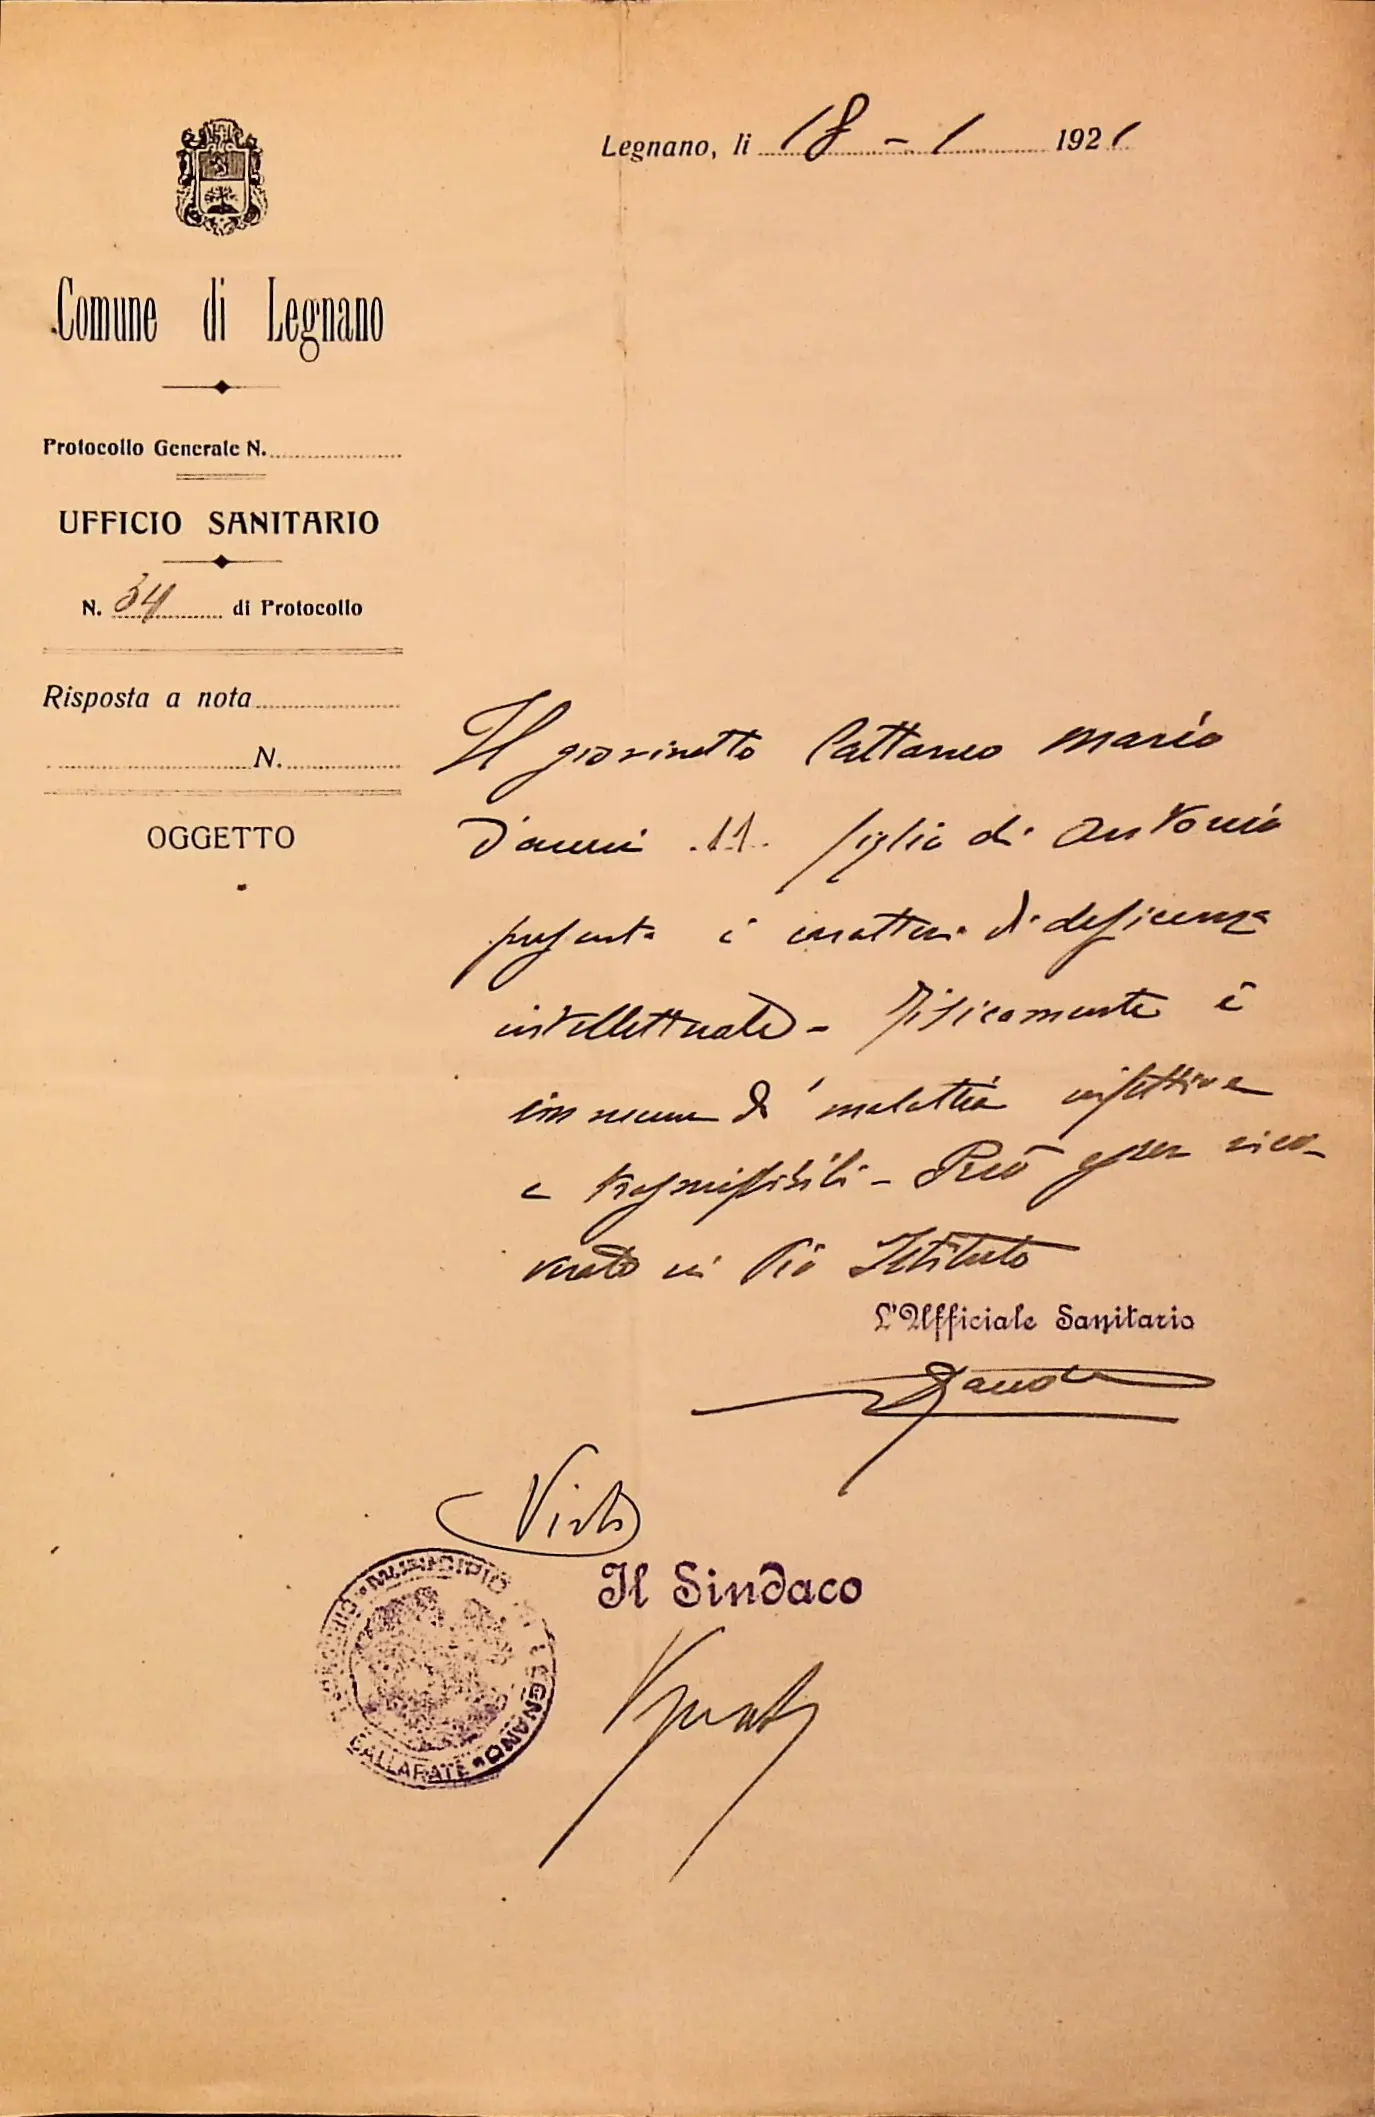 Legnano, li 18 - 1 1921
Comune di Legnano
Protocollo Generale N.
UFFICIO SANITARIO
N. 34 di Protocollo
Risposta a nota
N.
OGGETTO
Il giovinetto Cattaneo Mario
d'anni 11 figlio di Antonio
presenta i caratteri di deficenza
intellettuale - Fisicamente è
immune di malattia infettiva
e trasmissibili - Può esser rico-
verato in Pio Istituto
L'Ufficiale Sanitario
Visto
Il Sindaco
MUNICIPIO DI LEGNANO
GALLARATE